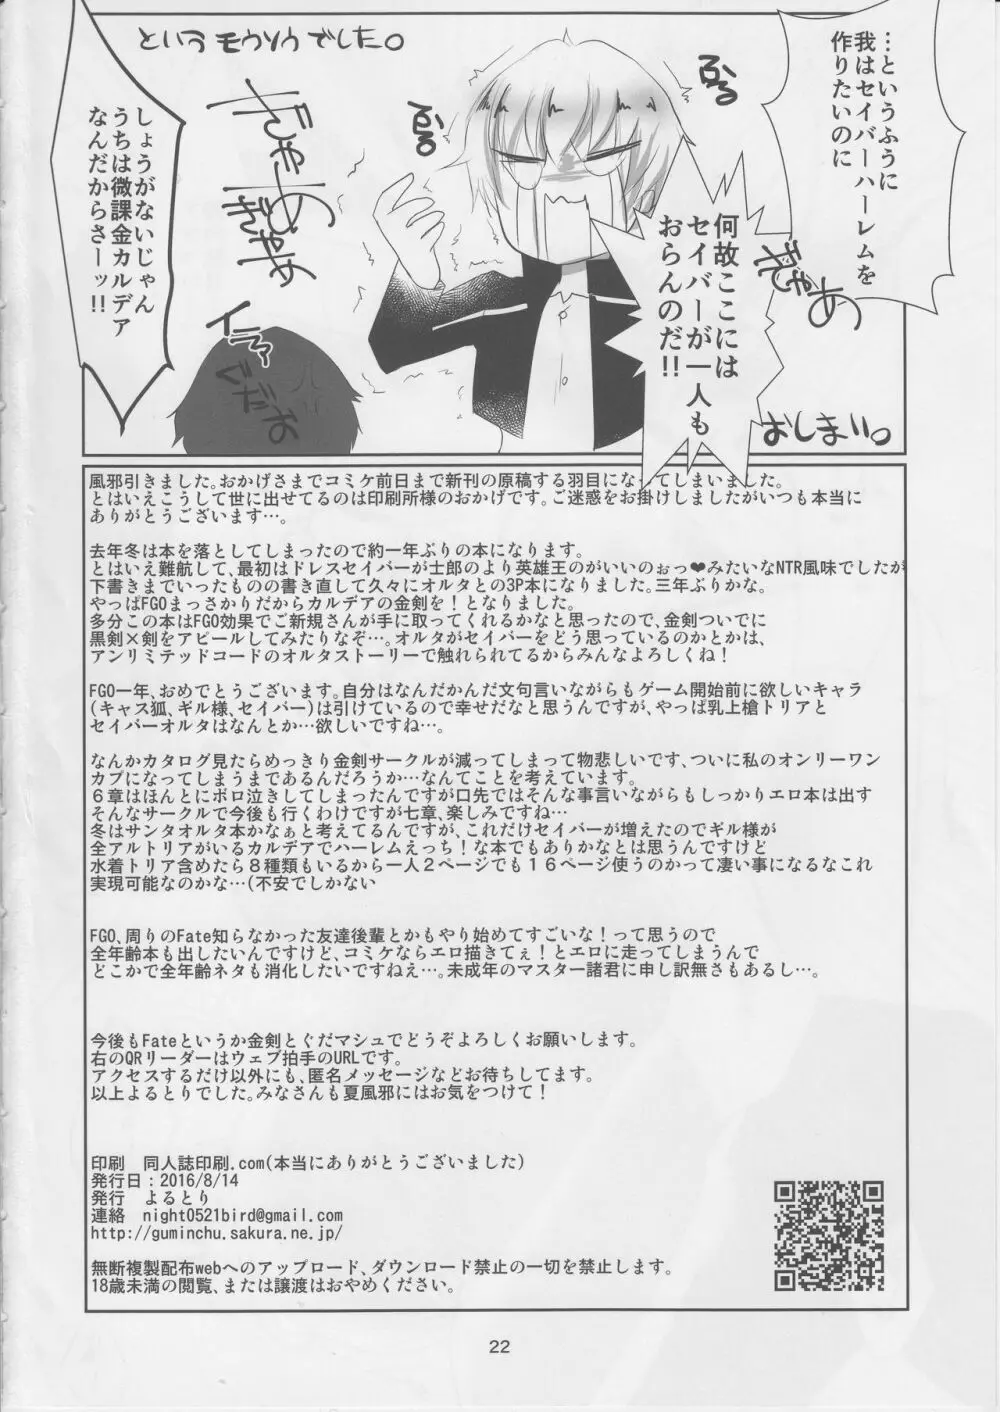 …というふうに
我はセイバーハーレムを
作りたいのに
何故ここには
セイバーが一人も
おらんのだ!!
ぎゃあ
ぷる
ぷる
というモウソウでした。
ぎゃあ
ぎゃめ
しょうがないじゃん
うちは微課金カルデア
なんだからさーッ!!
イラ
ぐだお
おしまい。
風邪引きました。おかげさまでコミケ前日まで新刊の原稿する羽目になってしまいました。
とはいえこうして世に出せてるのは印刷所様のおかげです。ご迷惑をお掛けしましたがいつも本当に
ありがとうございます…。
去年冬は本を落としてしまったので約一年ぶりの本になります。
とはいえ難航して、最初はドレスセイバーが士郎のより英雄王のがいいのぉっ❤みたいなNTR風味でしたが
下書きまでいったものの書き直して久々にオルタとの3P本になりました。三年ぶりかな。
やっぱFGOまっさかりだからカルデアの金剣を！となりました。
多分この本はFGO効果でご新規さんが手に取ってくれるかなと思ったので、金剣ついでに
黒剣×剣をアピールしてみたりなぞ…。オルタがセイバーをどう思っているのかとかは、
アンリミテッドコードのオルタストーリーで触れられてるからみんなよろしくね！
FGO一年、おめでとうございます。自分はなんだかんだ文句言いながらもゲーム開始前に欲しいキャラ
(キャス狐、ギル様、セイバー)は引けているので幸せだなと思うんですが、やっぱ乳上槍トリアと
セイバーオルタはなんとか…欲しいですね…。
なんかカタログ見たらめっきり金剣サークルが減ってしまって物悲しいです、ついに私のオンリーワン
カプになってしまうまであるんだろうか…なんてことを考えています。
６章はほんとにボロ泣きしてしまったんですが口先ではそんな事言いながらもしっかりエロ本は出す
そんなサークルで今後も行くわけですが七章、楽しみですね…
冬はサンタオルタ本かなぁと考えてるんですが、これだけセイバーが増えたのでギル様が
全アルトリアがいるカルデアでハーレムえっち！な本でもありかなとは思うんですけど
水着トリア含めたら８種類もいるから一人２ページでも１６ページ使うのかって凄い事になるなこれ
実現可能なのかな…(不安でしかない
FGO、周りのFate知らなかった友達後輩とかもやり始めてすごいな！って思うので
全年齢本も出したいんですけど、コミケならエロ描きてぇ！とエロに走ってしまうんで
どこかで全年齢ネタも消化したいですねえ…。未成年のマスター諸君に申し訳無さもあるし…。
今後もFateというか金剣とぐだマシュでどうぞよろしくお願いします。
右のQRリーダーはウェブ拍手のURLです。
アクセスするだけ以外にも、匿名メッセージなどお待ちしてます。
以上よるとりでした。みなさんも夏風邪にはお気をつけて！
印刷　同人誌印刷.com(本当にありがとうございました)
発行日：2016/8/14
発行　よるとり
連絡　night0521bird@gmail.com
http://guminchu.sakura.ne.jp/
無断複製配布webへのアップロード、ダウンロード禁止の一切を禁止します。
18歳未満の閲覧、または譲渡はおやめください。
22